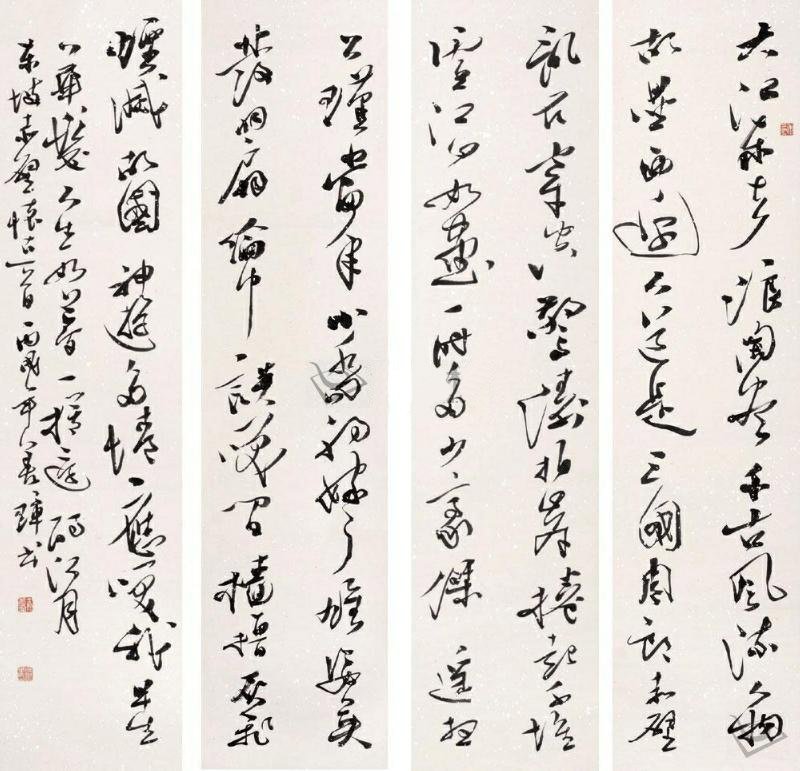 大江東去浪淘盡千古風流人物
故壘西邊人道是三國周郎赤壁
亂石穿空驚濤拍岸捲起千堆
雪江山如畫一時多少豪傑遙想
公瑾當年小喬初嫁了雄姿英
發羽扇綸巾談笑間檣櫓灰飛
煙滅故國神遊多情應笑我早生
華髮人生如夢一樽還酹江月
東坡赤壁懷古一首丙戌年書